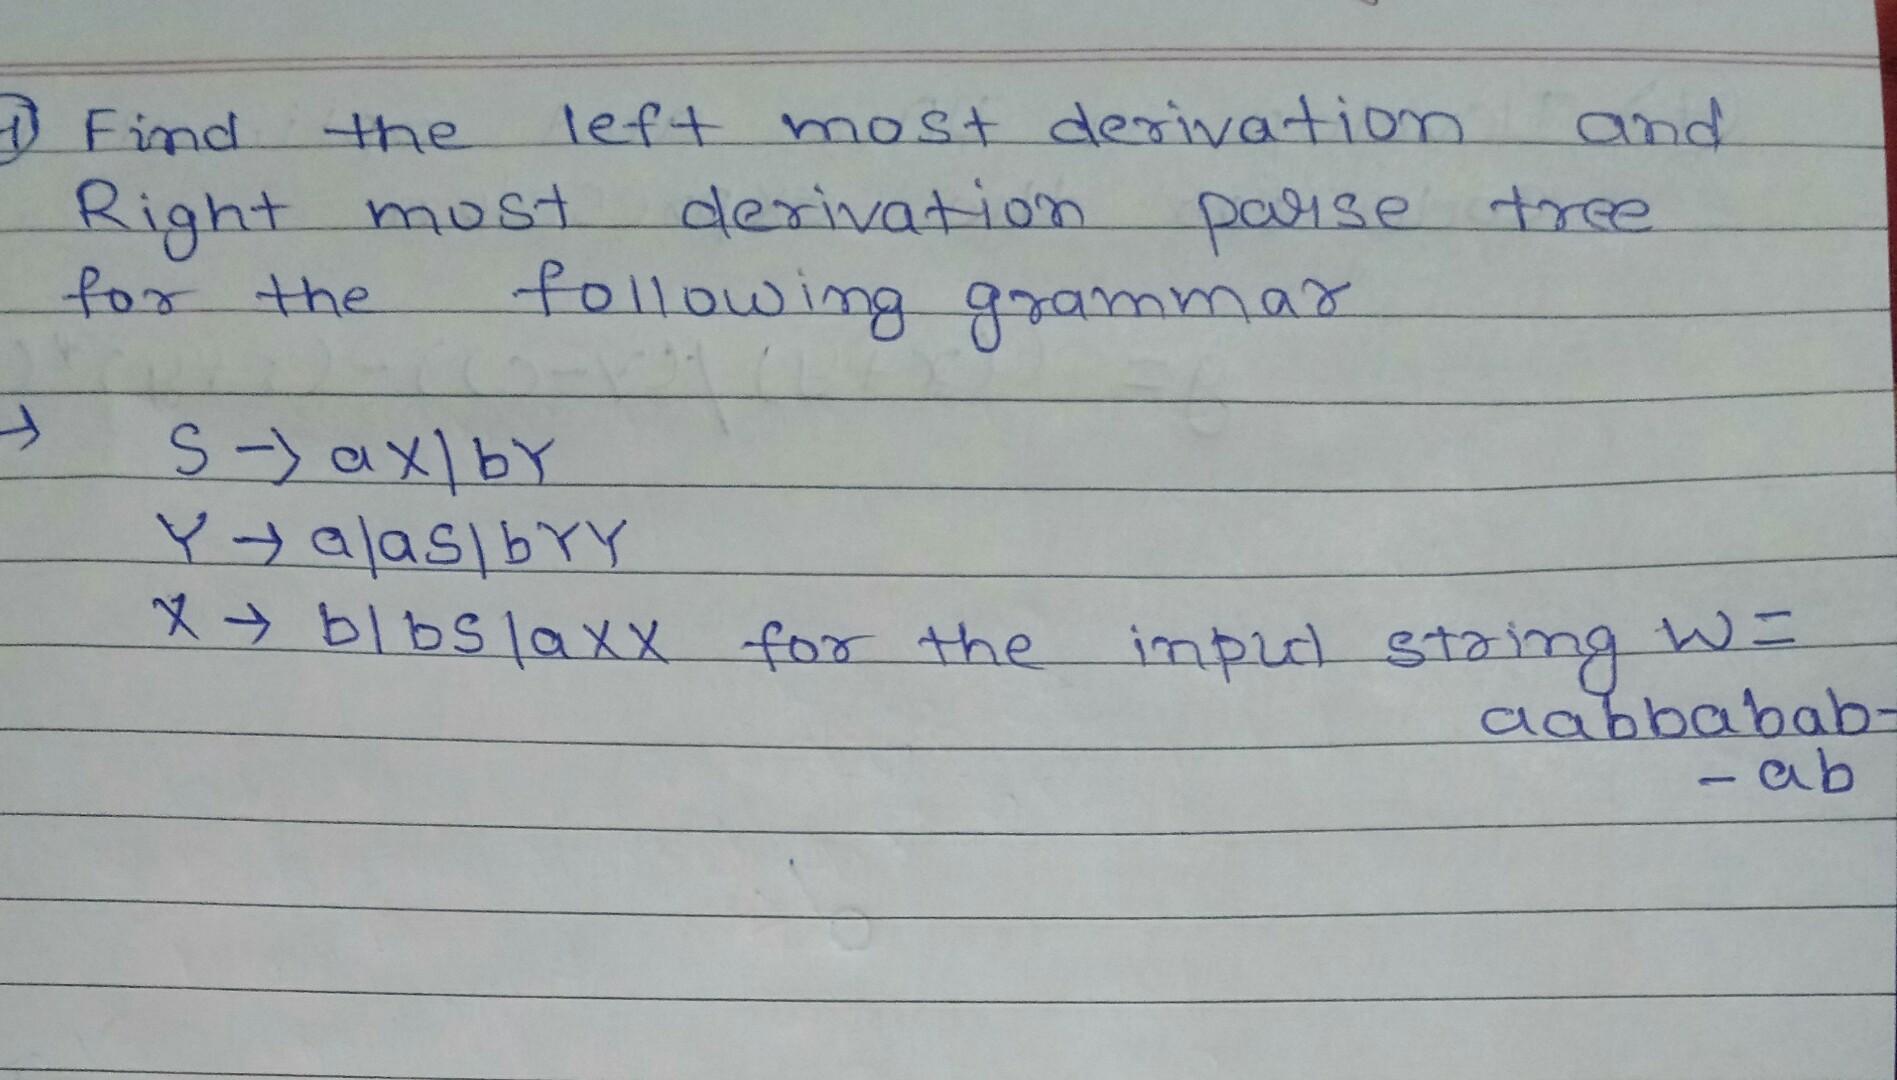 ① Find the left most derivation and
Right most derivation parse tree
for the following grammar
→ S → aX|bY
Y → a|aS|bYY
X → b|bS|aXX for the input string W =
aabbabab-
- ab